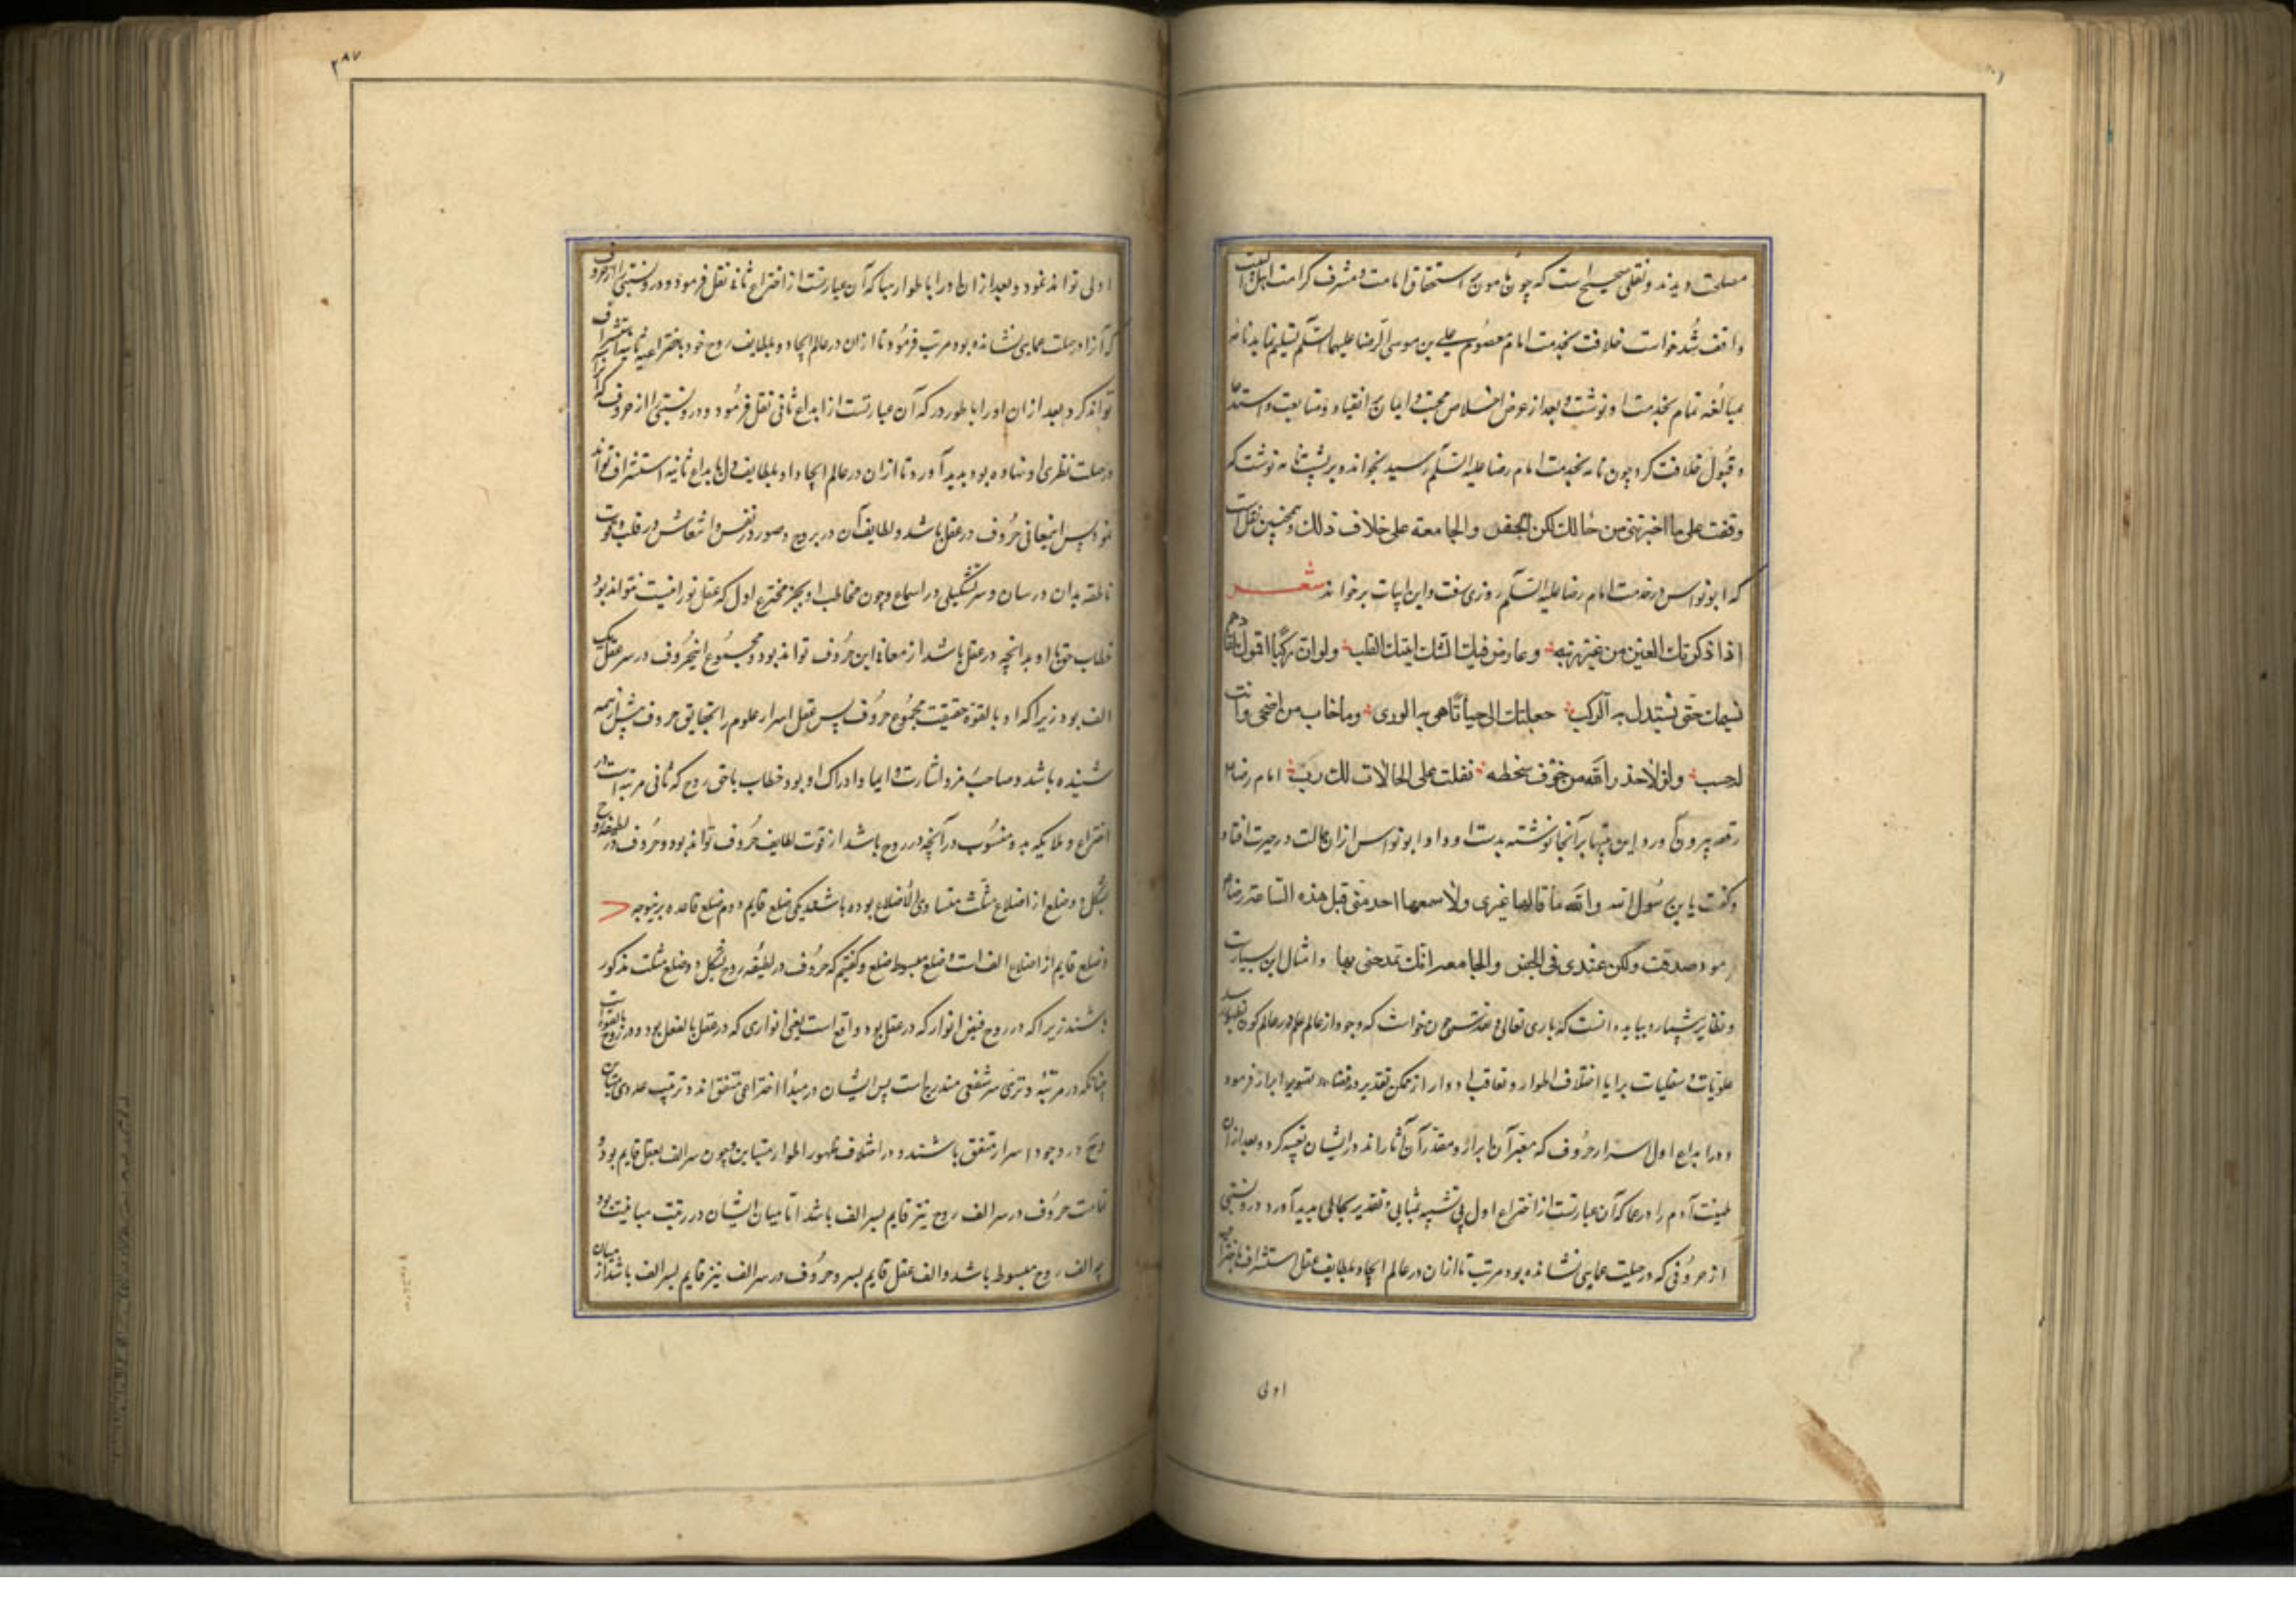 مصلحت دیدند و نقلی صحیح است که چون مامون بر استحقاق امامت و شرف کرامت اهل البیت
واقف شد خواست خلافت بخدمت امام معصوم علی بن موسی الرضا علیهما السلم تسلیم نماید نامه
مبالغه تمام بخدمت او نوشت و بعد از عرض اخلاص محبت و ایمان انقیاد و متابعت و استدعا
و قبول خلافت کرد چون نامه بخدمت امام رضا علیه السلم رسید بخواند و بر پشت نامه نوشت کم
وقفت علی ما اخبرتنی من حالك لكن الجفر والجامعة علی خلاف ذلك و همچنین نقل است
که ابونواس در خدمت امام رضا علیه السلم روزی رفت و این ابیات بر خواند شعر
اذا ذكرتك العين من غير ريبة وعارض فيك الشك اثبتك القلب ولو ان ركبا اقول
نسيمك حتى يستدل به الركب جعلتك الی حياتی اهی به الوری وما خاب من اضحی وانت
لحسب ولن لاحذر والله من خوف سخطه نقلت علی الحالات لك رب امام رضا
رقعه بیرون آورد این بیتها بر آنجا نوشته بدست او داد ابونواس از آن حالت در حیرت افتاد
و گفت یا بن رسول الله والله ما قالها غيری ولا سمعها احد منی قبل هذه الساعة رضا
فرمود صدقت ولكن عندی فی الجفر والجامعه انك تمدحنی بها و امثال این بسیارست
و نظایر بیشمار و بباید دانست که باری تعالی و تقدس چون خواست که وجود از عالم علم در عالم کون
علویات و سفلیات برایا اختلاف اطوار و تعاقب ادوار از ممکن تقدیر در فضاء تصویر ابراز فرمود
و در ابداع اول اسرار حروف که معبر آن ابراز و مقدر آن آثارند در ایشان تعبیه کرد و بعد از آن
طینت آدم را در عما که آن عبارتست از اختراع اول بی تشبیه بمثالی و تقدیر بحالی پدید آورد در و نسبتی
از حروفی که در جبلت عمایی نشانده بود مرتب تا از آن در عالم ایجاد بلطایف عقل استشراف
اولی
۲۸۷
اولی تواند نمود و بعد از ان او را باطوار هبا که آن عبارتست از اختراع ثانی نقل فرمود و در و نسبتی از حروف
که آنرا در جبلت عمایی نشانده بود مرتب فرمود تا از ان در عالم ایجاد و بلطایف روح خود باختراعیه ثانیه استشراف
تواند کرد بعد از ان او را باطور در که آن عبارتست از ابداع ثانی نقل فرمود و در و نسبتی از حروف که
در جبلت نظری او نهاده بود پدید آورد تا از ان در عالم ایجاد او بلطایف دل بابداع ثانیه استشراف تواند
نمود پس این معانی حروف در عقل باشد و لطایف آن در روح و صور در نفس و انتعاش در قلب و قوت
ناطقه بدان در لسان و سر تشکیلی در اسماع و چون مخاطب او بجز مخترع اول که عقل نورانیست نتواند بود
خطاب حق با او بدانچه در عقل باشد از معانی این حروف تواند بود و مجموع این حروف در سر عقل یک
الف بود زیرا که او بالقوه حقیقت مجموع حروف پس عقل اسرار علوم را بحقایق حروف پیش از همه
شنیده باشد و صاحب رمز و اشارت و ایما و ادراک او بود خطاب با حق روح که ثانی مرتبه است در
اختراع و ملایکه بدو منسوب در آنچه در روح باشد از قوت لطایف حروف تواند بود و حروف در لطیفه روح
بشکل دو ضلع از اضلاع مثلث متساوی الاضلاع بوده باشد یکی ضلع قایم دوم ضلع قاعده برینوجه
و ضلع قایم از اضلاع الف است و ضلع مبسوط ضلع و گفتیم که حروف در لطیفه روح بشکل دو ضلع مثلث مذکور
باشند زیرا که در روح فیض انوار که در عقل بود واقع است یعنی انواری که در عقل بالفعل بود و در روح بالقوه است
چنانکه در مرتبه وتری سر شفعی مندرج است پس ایشان در مبدا اختراعی متفق اند و ترتیب عددی میان
روح در وجود اسرار متفق باشند و در اختلاف ظهور اطوار متباین و چون سر الف بعقل قایم بود
قامت حروف در سر الف روح نیز قایم بسر الف باشد اما میان ایشان در رتبت مباینت بود
چه الف روح مبسوط باشد و الف عقل قایم بسر و حروف در سر الف نیز قایم بسر الف باشد از میان